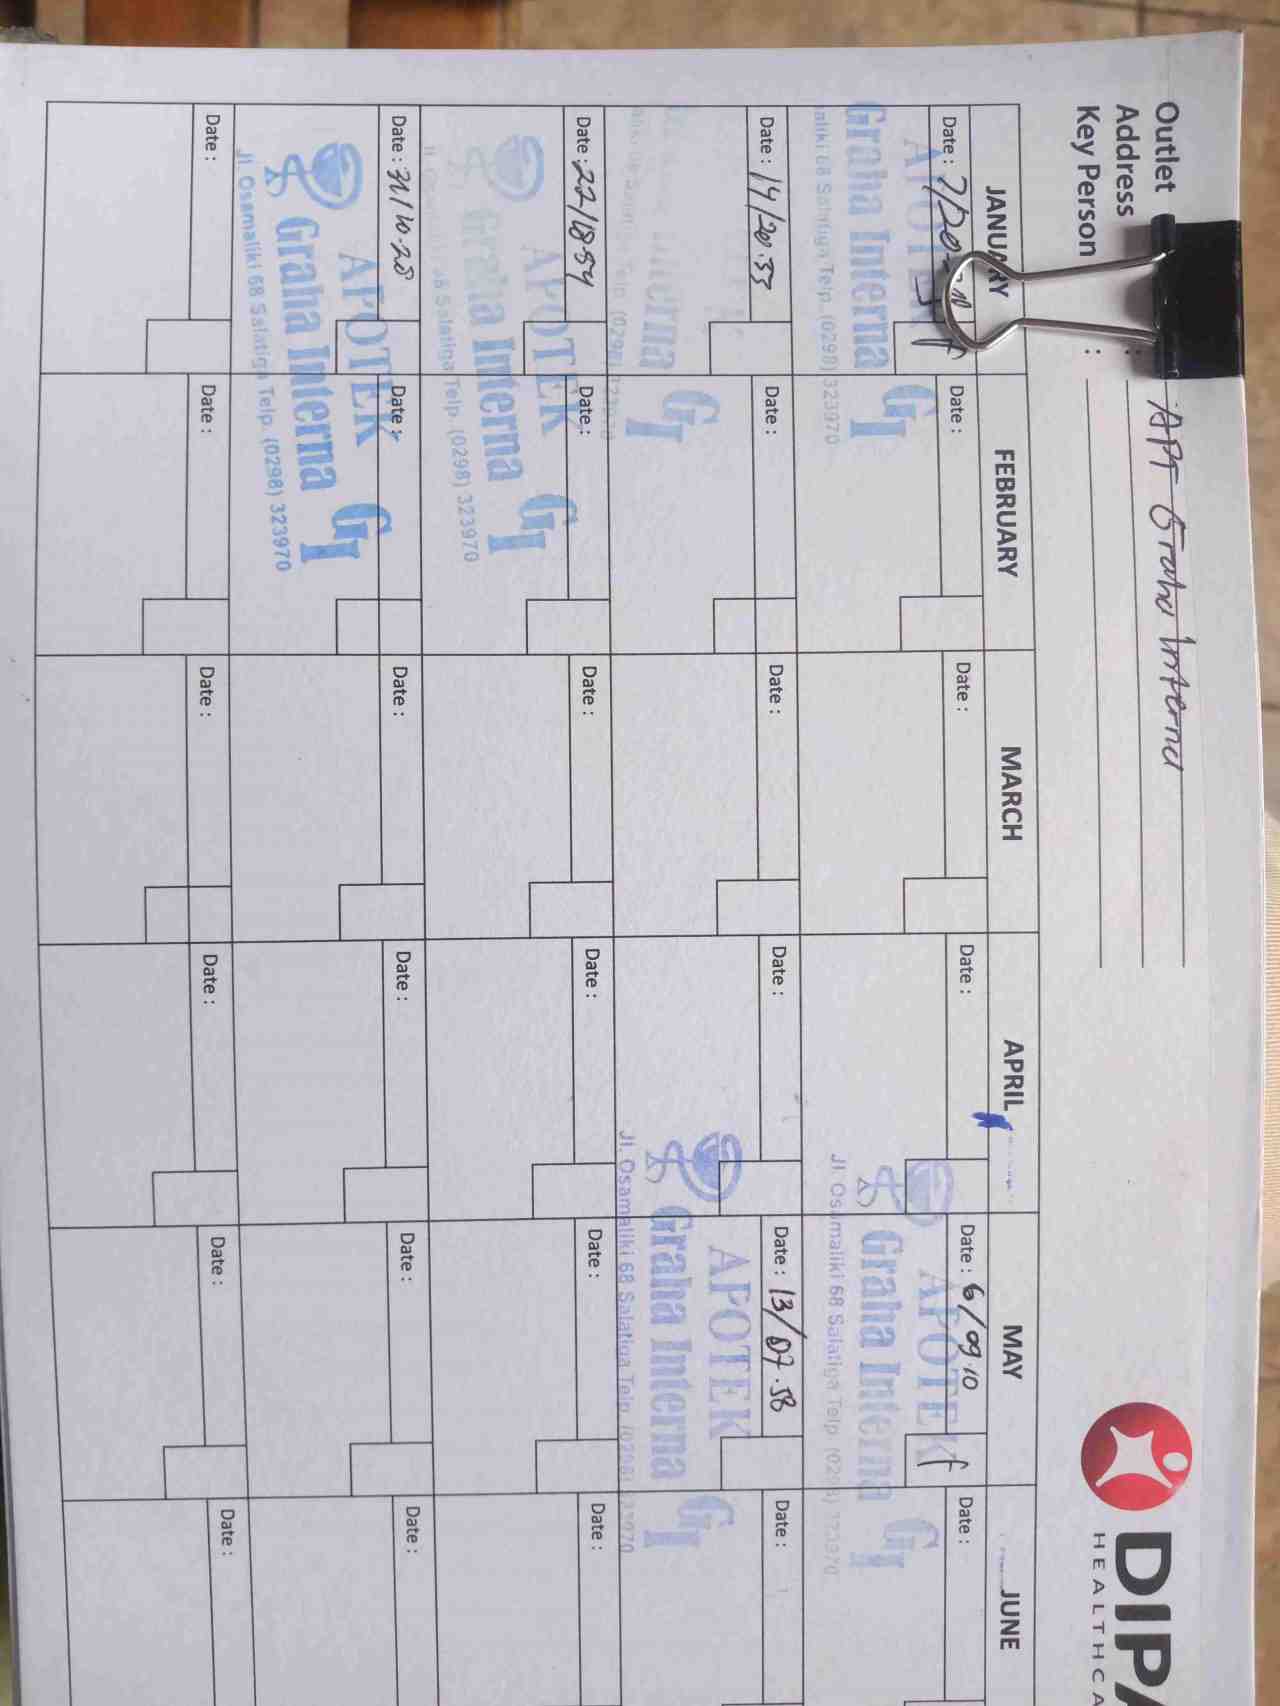 Outlet APT Graha Interna
Address :
Key Person :
DIPA
HEALTHCA
JANUARY FEBRUARY MARCH APRIL MAY JUNE
Date : Date : Date : Date : Date : 6/09.10 Date :
APOTEK
Graha Interna GI
aliki 68 Salatiga Telp. (0298) 323970
APOTEK
Graha Interna GI
Jl. Osamaliki 68 Salatiga Telp. (0298) 323970
Date : 14/20.33 Date : Date : Date : Date : 13/07.58 Date :
Interna GI
APOTEK
Graha Interna GI
Jl. Osamaliki 68 Salatiga Telp. (0298) 323970
Date : 22/18.54 Date : Date : Date : Date : Date :
APOTEK
Graha Interna GI
68 Salatiga Telp. (0298) 323970
Date : 31/10.28 Date : Date : Date : Date : Date :
APOTEK
Graha Interna GI
Jl. Osamaliki 68 Salatiga Telp. (0298) 323970
Date : Date : Date : Date : Date : Date :